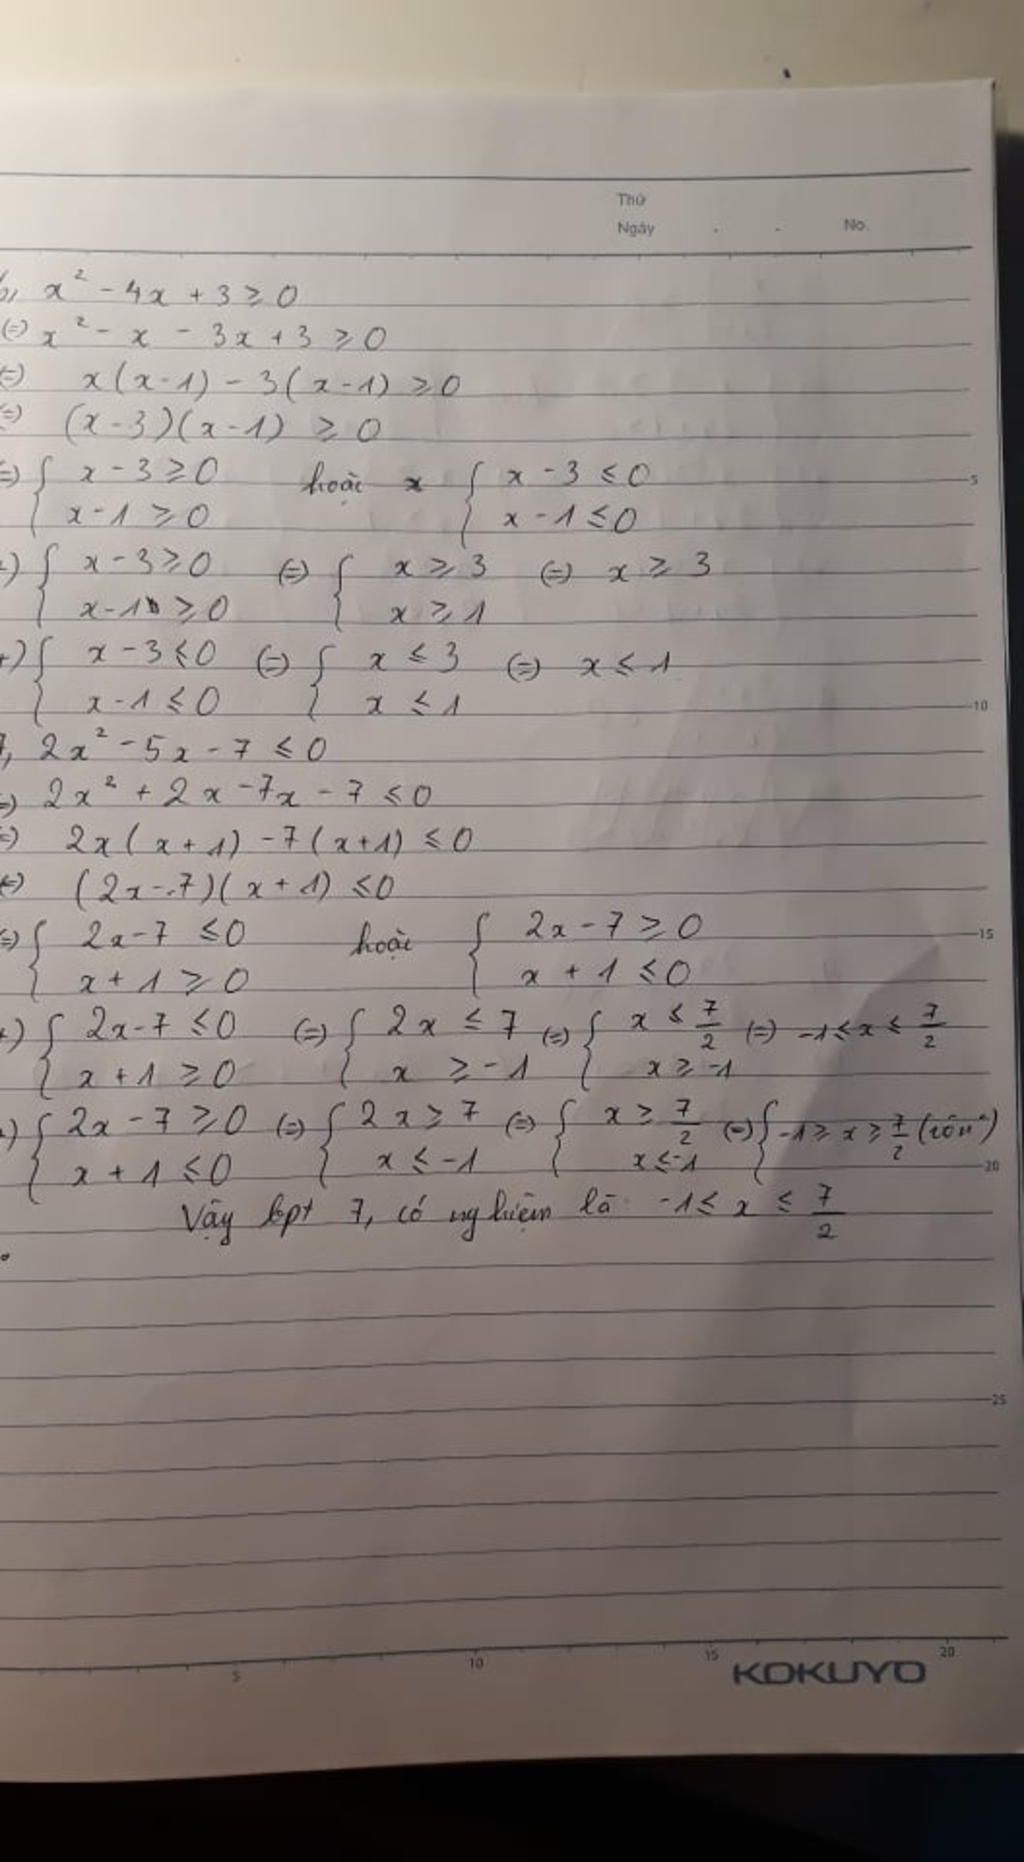 Thứ
Ngày . . No.
x² - 4x + 3 ≥ 0
(=) x² - x - 3x + 3 ≥ 0
(=) x(x-1) - 3(x-1) ≥ 0
(=) (x-3)(x-1) ≥ 0
(=) { x - 3 ≥ 0 hoặc { x - 3 ≤ 0
x - 1 ≥ 0 x - 1 ≤ 0 5
+) { x - 3 ≥ 0 (=) { x ≥ 3 (=) x ≥ 3
x - 1 ≥ 0 x ≥ 1
+) { x - 3 ≤ 0 (=) { x ≤ 3 (=) x ≤ 1
x - 1 ≤ 0 x ≤ 1 10
7, 2x² - 5x - 7 ≤ 0
(=) 2x² + 2x - 7x - 7 ≤ 0
(=) 2x(x+1) - 7(x+1) ≤ 0
(=) (2x-7)(x+1) ≤ 0
(=) { 2x-7 ≤ 0 hoặc { 2x - 7 ≥ 0 15
x + 1 ≥ 0 x + 1 ≤ 0
+) { 2x-7 ≤ 0 (=) { 2x ≤ 7 (=) { x ≤ 7/2 (=) -1 ≤ x ≤ 7/2
x + 1 ≥ 0 x ≥ -1 x ≥ -1
+) { 2x - 7 ≥ 0 (=) { 2x ≥ 7 (=) { x ≥ 7/2 (=) { -1 ≥ x ≥ 7/2
x + 1 ≤ 0 x ≤ -1 x ≤ -1 20
Vậy bpt 7, có nghiệm là -1 ≤ x ≤ 7/2
25
5 10 15 20
KOKUYO